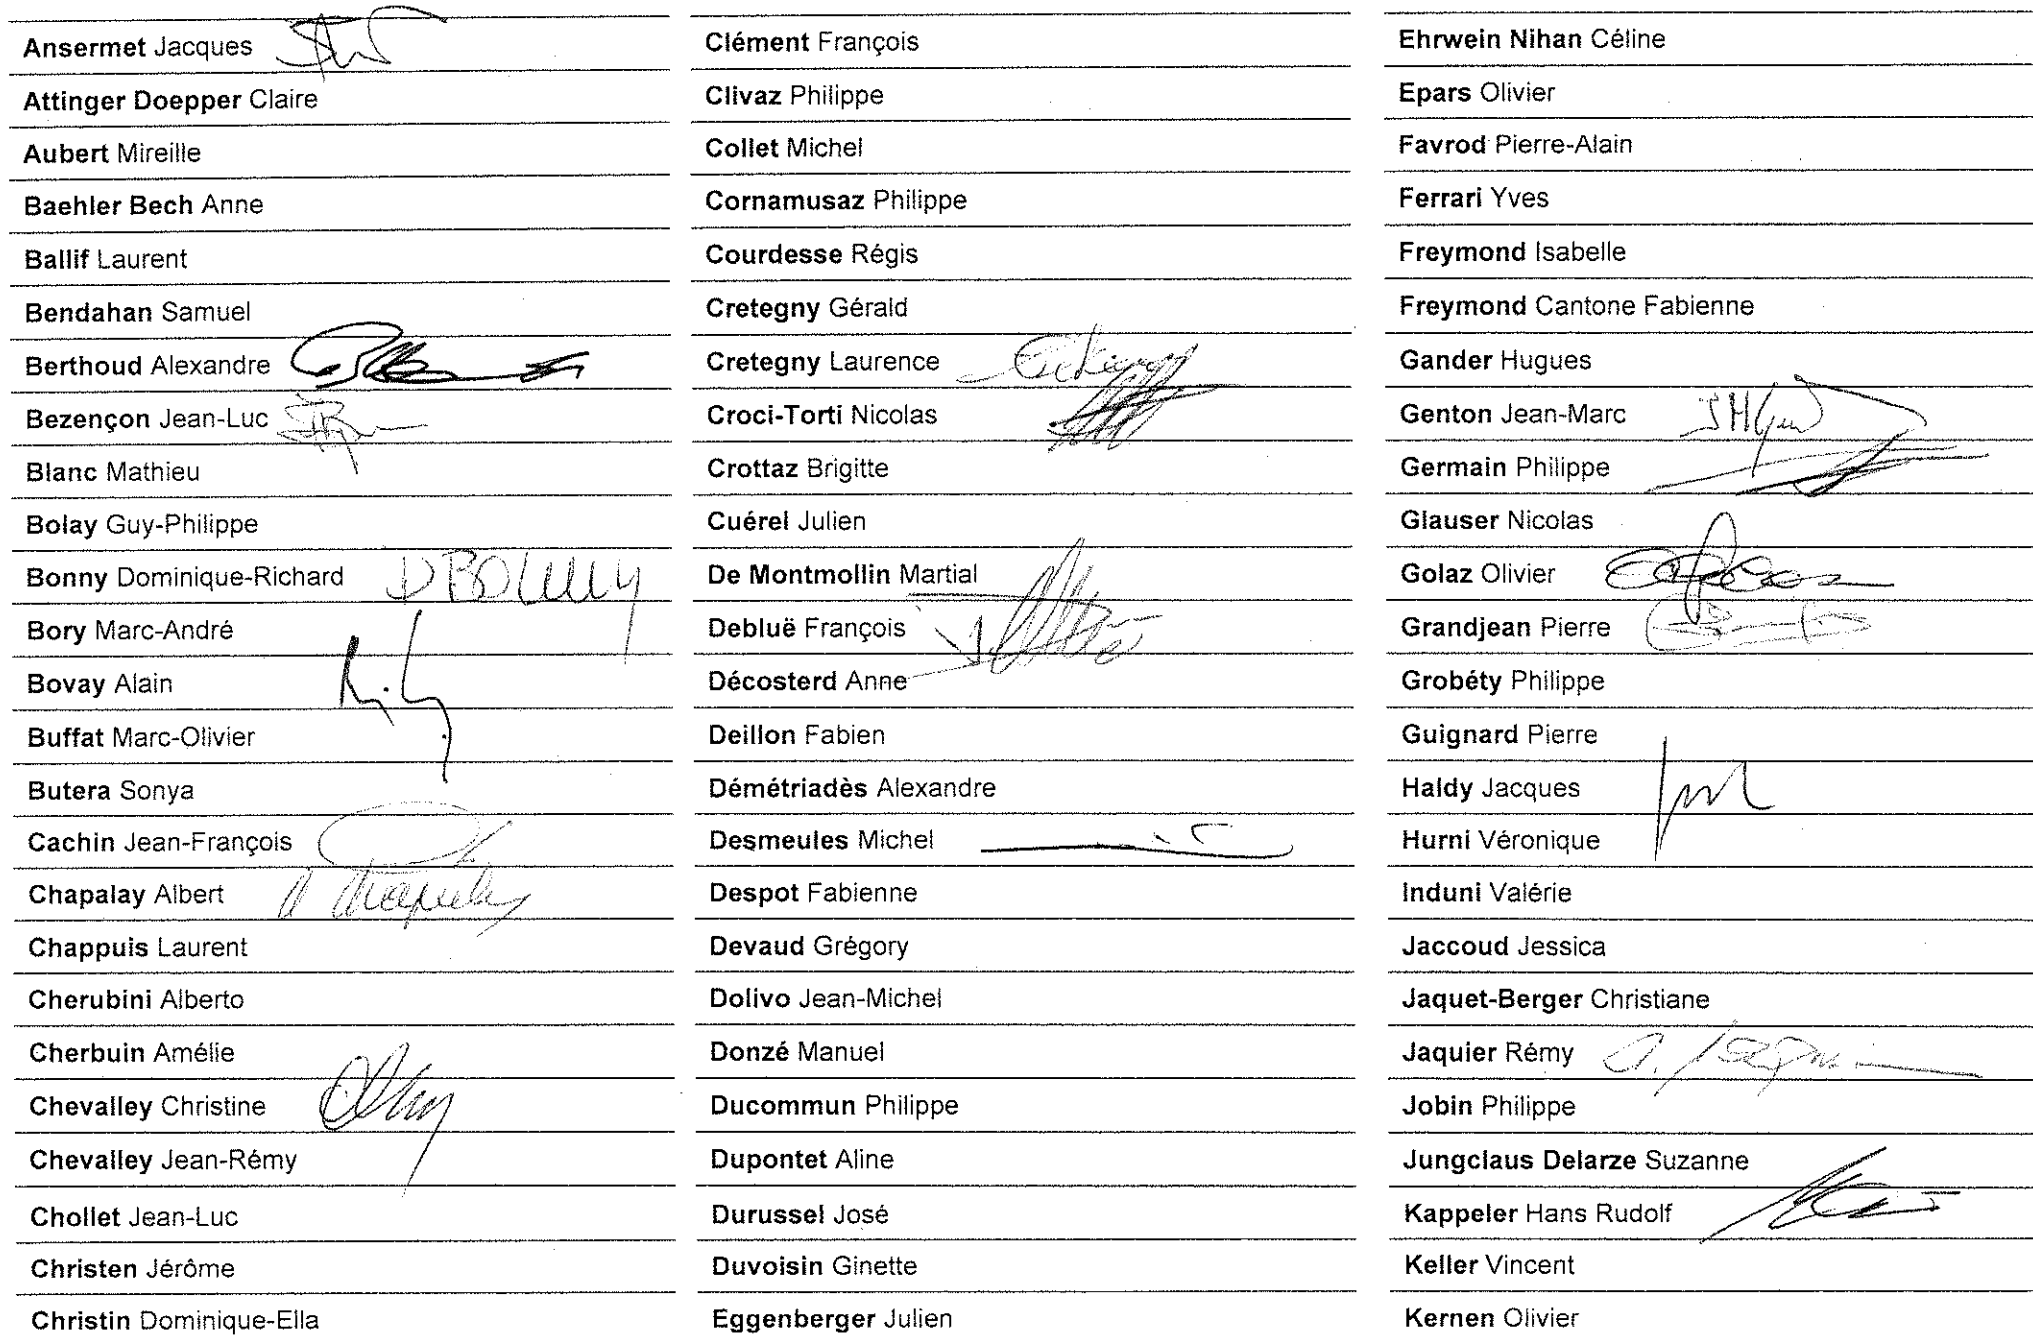 Ansermet Jacques
Attinger Doepper Claire
Aubert Mireille
Baehler Bech Anne
Ballif Laurent
Bendahan Samuel
Berthoud Alexandre
Bezençon Jean-Luc
Blanc Mathieu
Bolay Guy-Philippe
Bonny Dominique-Richard D BONNY
Bory Marc-André
Bovay Alain
Buffat Marc-Olivier
Butera Sonya
Cachin Jean-François
Chapalay Albert
Chappuis Laurent
Cherubini Alberto
Cherbuin Amélie
Chevalley Christine
Chevalley Jean-Rémy
Chollet Jean-Luc
Christen Jérôme
Christin Dominique-Ella
Clément François
Clivaz Philippe
Collet Michel
Cornamusaz Philippe
Courdesse Régis
Cretegny Gérald
Cretegny Laurence
Croci-Torti Nicolas
Crottaz Brigitte
Cuérel Julien
De Montmollin Martial
Debluë François
Décosterd Anne
Deillon Fabien
Démétriadès Alexandre
Desmeules Michel
Despot Fabienne
Devaud Grégory
Dolivo Jean-Michel
Donzé Manuel
Ducommun Philippe
Dupontet Aline
Durussel José
Duvoisin Ginette
Eggenberger Julien
Ehrwein Nihan Céline
Epars Olivier
Favrod Pierre-Alain
Ferrari Yves
Freymond Isabelle
Freymond Cantone Fabienne
Gander Hugues
Genton Jean-Marc
Germain Philippe
Glauser Nicolas
Golaz Olivier
Grandjean Pierre
Grobéty Philippe
Guignard Pierre
Haldy Jacques
Hurni Véronique
Induni Valérie
Jaccoud Jessica
Jaquet-Berger Christiane
Jaquier Rémy
Jobin Philippe
Jungclaus Delarze Suzanne
Kappeler Hans Rudolf
Keller Vincent
Kernen Olivier